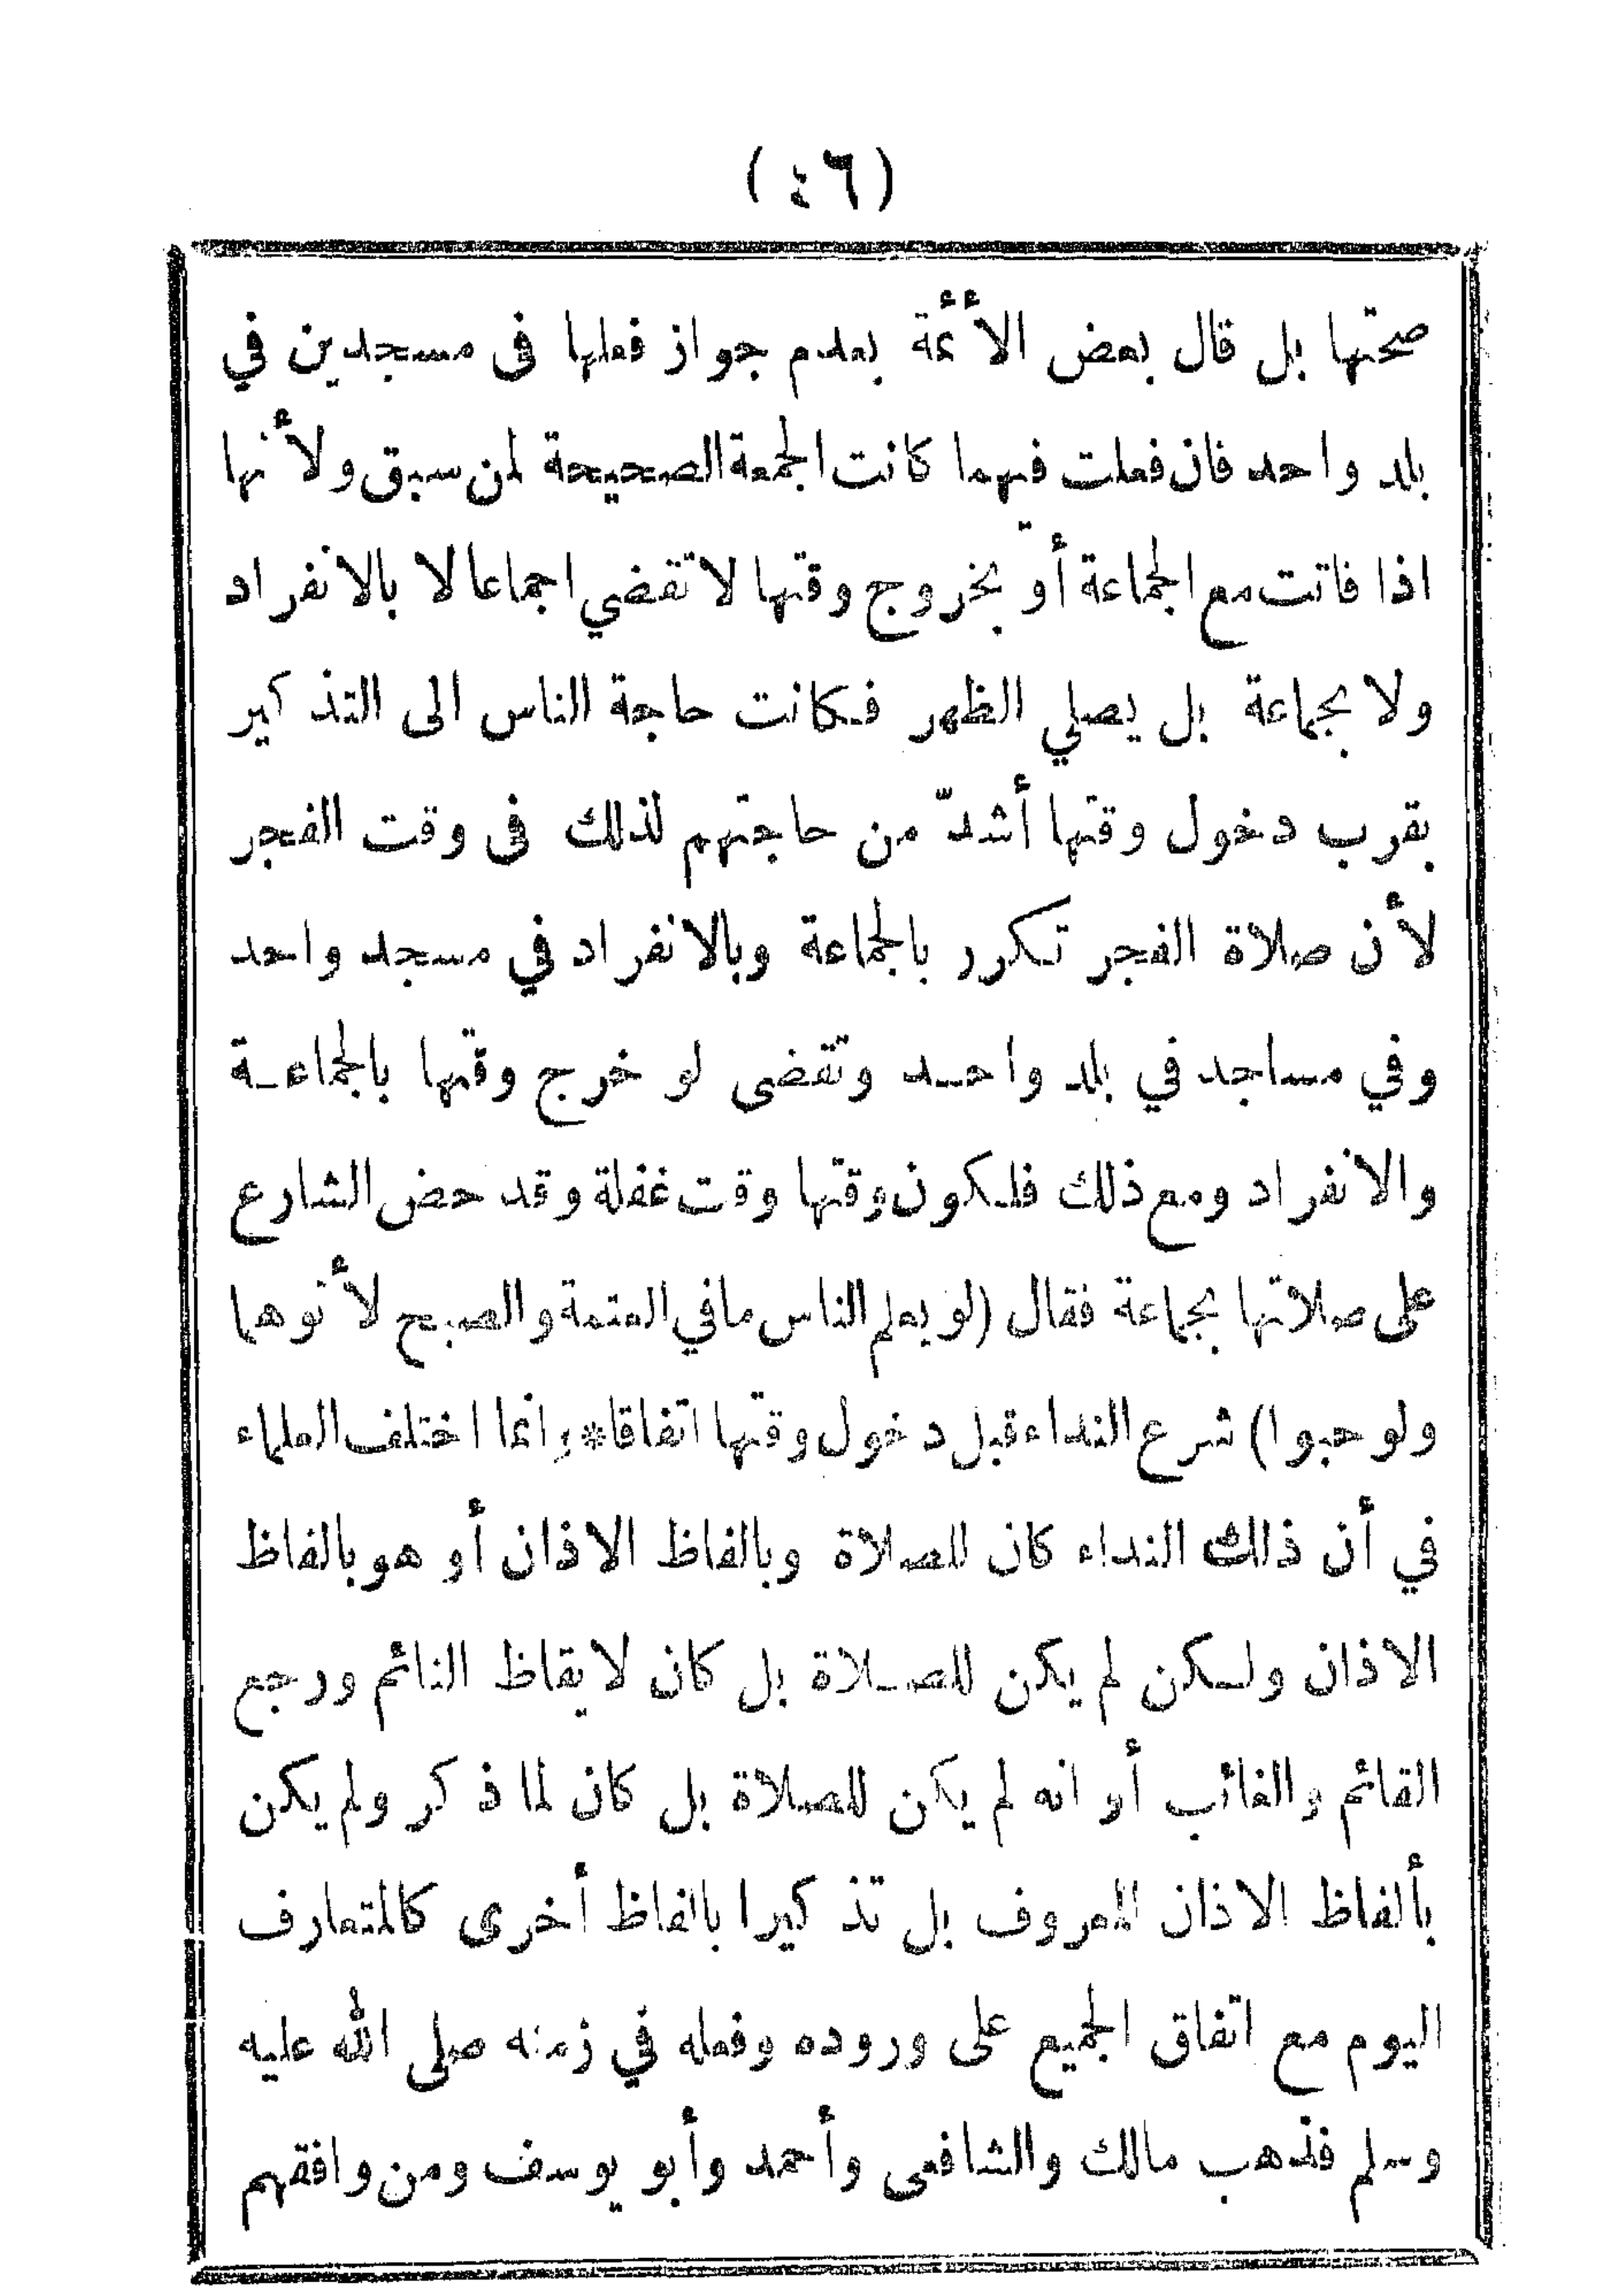 (٤٦)
صحتها بل قال بعض الأئمة بعدم جواز فعلها فى مسجدين في
بلد واحد فان فعلت فيهما كانت الجمعة الصحيحة لمن سبق ولأنها
اذا فاتت مع الجماعة أو بخروج وقتها لا تقضي اجماعا لا بالانفراد
ولا بجماعة بل يصلي الظهر فكانت حاجة الناس الى التذكير
بقرب دخول وقتها أشدّ من حاجتهم لذلك فى وقت الفجر
لأن صلاة الفجر تكرر بالجماعة وبالانفراد في مسجد واحد
وفي مساجد في بلد واحد وتقضى لو خرج وقتها بالجماعة
والانفراد ومع ذلك فلكون وقتها وقت غفلة وقد حض الشارع
على صلاتها بجماعة فقال (لو يعلم الناس ما في العتمة والصبح لأتوهما
ولو حبوا) شرع النداء قبل دخول وقتها اتفاقا * وانما اختلف العلماء
في أن ذلك النداء كان للصلاة وبالفاظ الاذان أو هو بالفاظ
الاذان ولكن لم يكن للصلاة بل كان لايقاظ النائم ورجع
القائم والغائب أو انه لم يكن للصلاة بل كان لما ذكر ولم يكن
بألفاظ الاذان المعروف بل تذكيرا بالفاظ أخرى كالمتعارف
اليوم مع اتفاق الجميع على وروده وفعله في زمنه صلى الله عليه
وسلم فذهب مالك والشافعى وأحمد وأبو يوسف ومن وافقهم